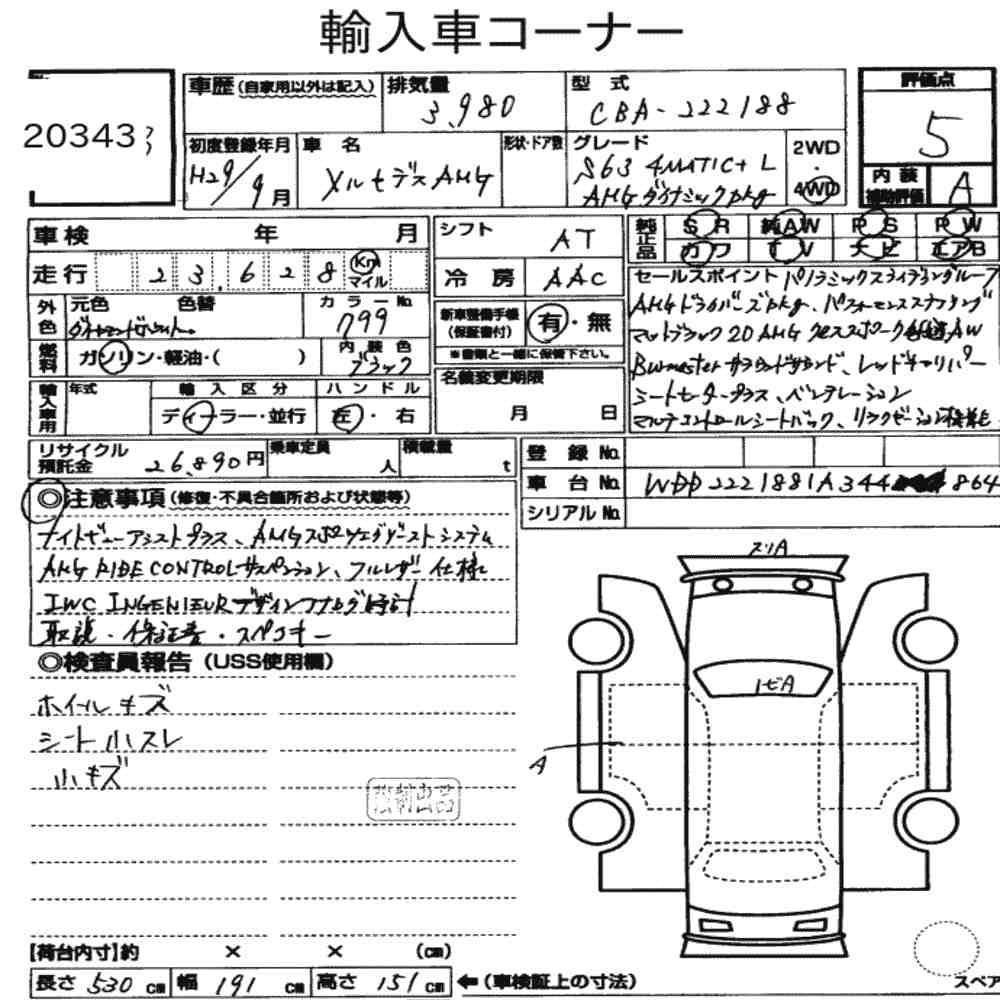 輸入車コーナー
20343
車歴 (自家用以外は記入)
排気量
3,980
型 式
CBA-222188
評価点
5
初度登録年月
H29/9月
車 名
メルセデスAMG
形状・ドア数
グレード
S63 4MATIC+ L
AMGダイナミックpkg
2WD
・
4WD
内 装
補助評価
A
車検 年 月
シフト
AT
純正品
SR 純AW PS PW
カワ TV ナビ エアB
走行 23,628 Km マイル
冷 房
AAC
セールスポイント パノラミックスライディングルーフ
AMGドライバーズpkg、パフォーマンスステアリング
マットブラック20AMGクロススポーク鍛造AW
Burmesterサラウンドサウンド、レッドキャリパー
シートヒータープラス、ベンチレーション
マルチコントロールシートバック、リラクゼーション機能
外色
元色 色替
ダイヤモンドホワイト
カラーNo.
799
新車整備手帳
(保証書付)
有・無
※書類と一緒に保管下さい。
燃料
ガソリン・軽油・( )
内 装 色
ブラック
名義変更期限
月 日
輸入車用
年式
輸 入 区 分
ディーラー・並行
ハ ン ド ル
左・右
リサイクル
預託金
26,890円
乗車定員
人
積載量
t
登 録 No.
車 台 No. WDD2221881A344 864
シリアル No.
◎注意事項 (修復・不具合箇所および状態等)
ナイトビューアシストプラス、AMGスポーツエグゾーストシステム
AMG RIDE CONTROLサスペンション、フルレザー仕様
IWC INGENIEURデザインアナログ時計
取説・保証書・スペアキー
◎検査員報告 (USS使用欄)
ホイールキズ
シート小スレ
小キズ
強制出品
スリA
トビA
A
【荷台内寸】約 × × (cm)
長さ 530 cm 幅 191 cm 高さ 151 cm ←(車検証上の寸法)
スペア